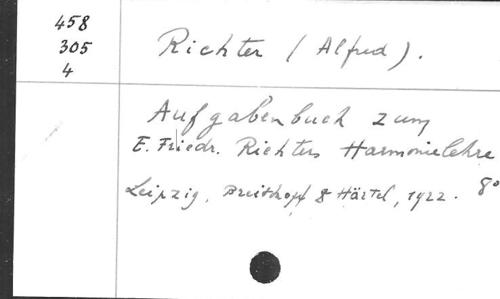 458
305
4
Richter (Alfred).
Aufgabenbuch zum
E. Friedr. Richters Harmonielehre
Leipzig, Breitkopf & Härtel, 1922. 8°